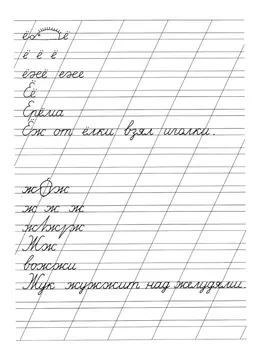 ё ё
ё ё ё
ёжё еже
Её
Ерёма
Ёж от ёлки взял иголки.
ж ж
ж ж ж
ж ж
Жж
вожжи
Жук жужжит над желудями.